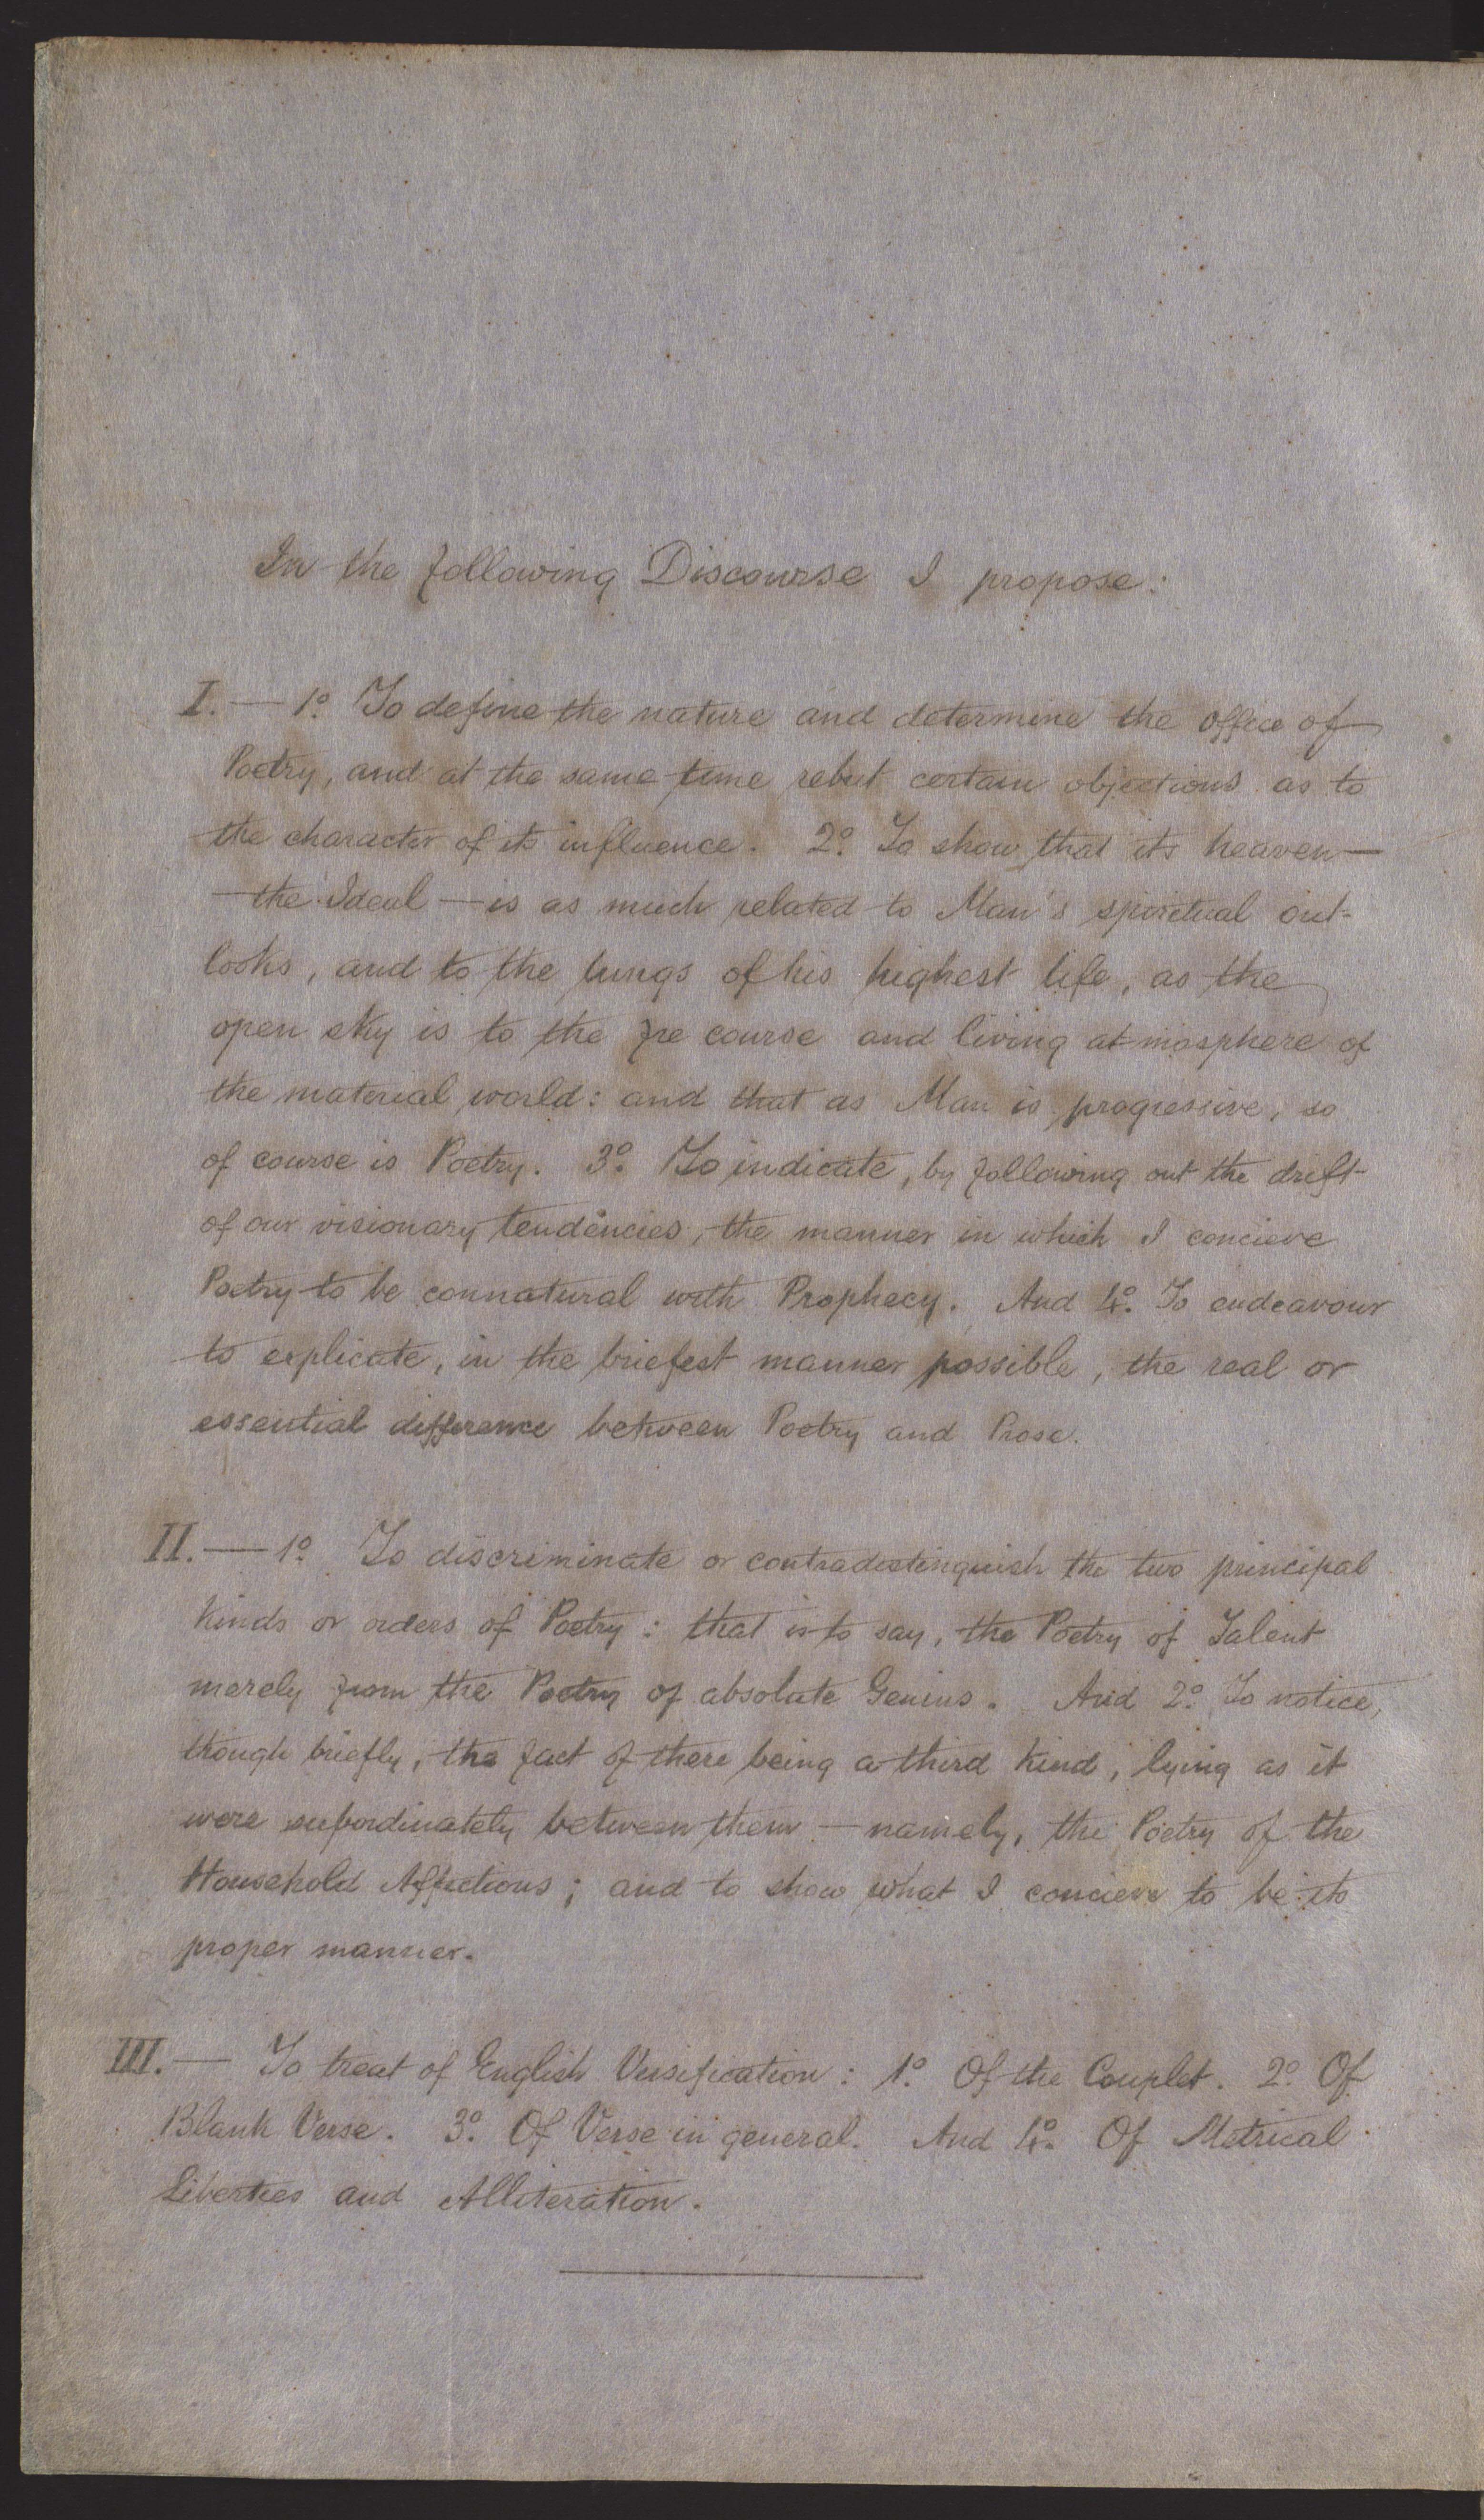 In the following Discourse I propose:
I. — 1º. To define the nature and determine the office of
Poetry, and at the same time rebut certain objections as to
the character of its influence. 2º. To show that its heaven —
— the Ideal — is as much related to Man's spiritual out-
looks, and to the lungs of his highest life, as the
open sky is to the fre course and living atmosphere of
the material world: and that as Man is progressive, so
of course is Poetry. 3º. To indicate, by following out the drift
of our visionary tendencies, the manner in which I concieve
Poetry to be connatural with Prophecy. And 4º. To endeavour
to explicate, in the briefest manner possible, the real or
essential difference between Poetry and Prose.
II. — 1º. To discriminate or contradistinguish the two principal
kinds or orders of Poetry: that is to say, the Poetry of Talent
merely from the Poetry of absolute Genius. And 2º. To notice,
though briefly, the fact of there being a third kind, lying as it
were subordinately between them — namely, the Poetry of the
Household Affections; and to show what I concieve to be its
proper manner.
III. — To treat of English Versification: 1º. Of the Couplet. 2º. Of
Blank Verse. 3º. Of Verse in general. And 4º. Of Metrical
Liberties and Alliteration.